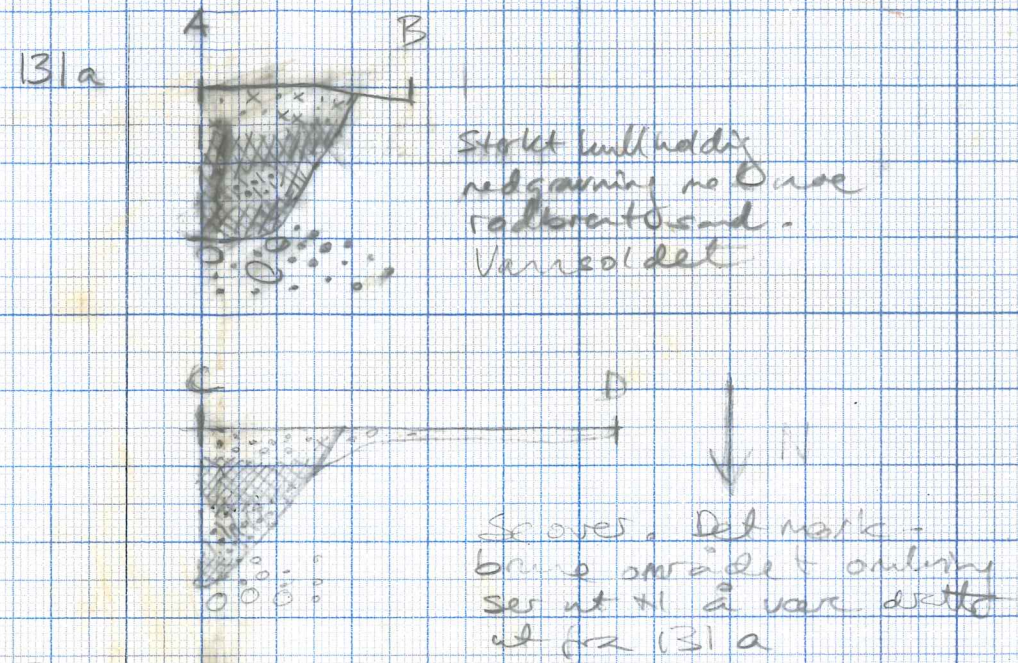 A B
131a
Sterkt kullholdig
nedgravning med noe
rødbrent sand.
Vannsoldet
C D
N
Se over. Det mørk-
brune området omkring
ser ut til å være dratt
ut fra 131a